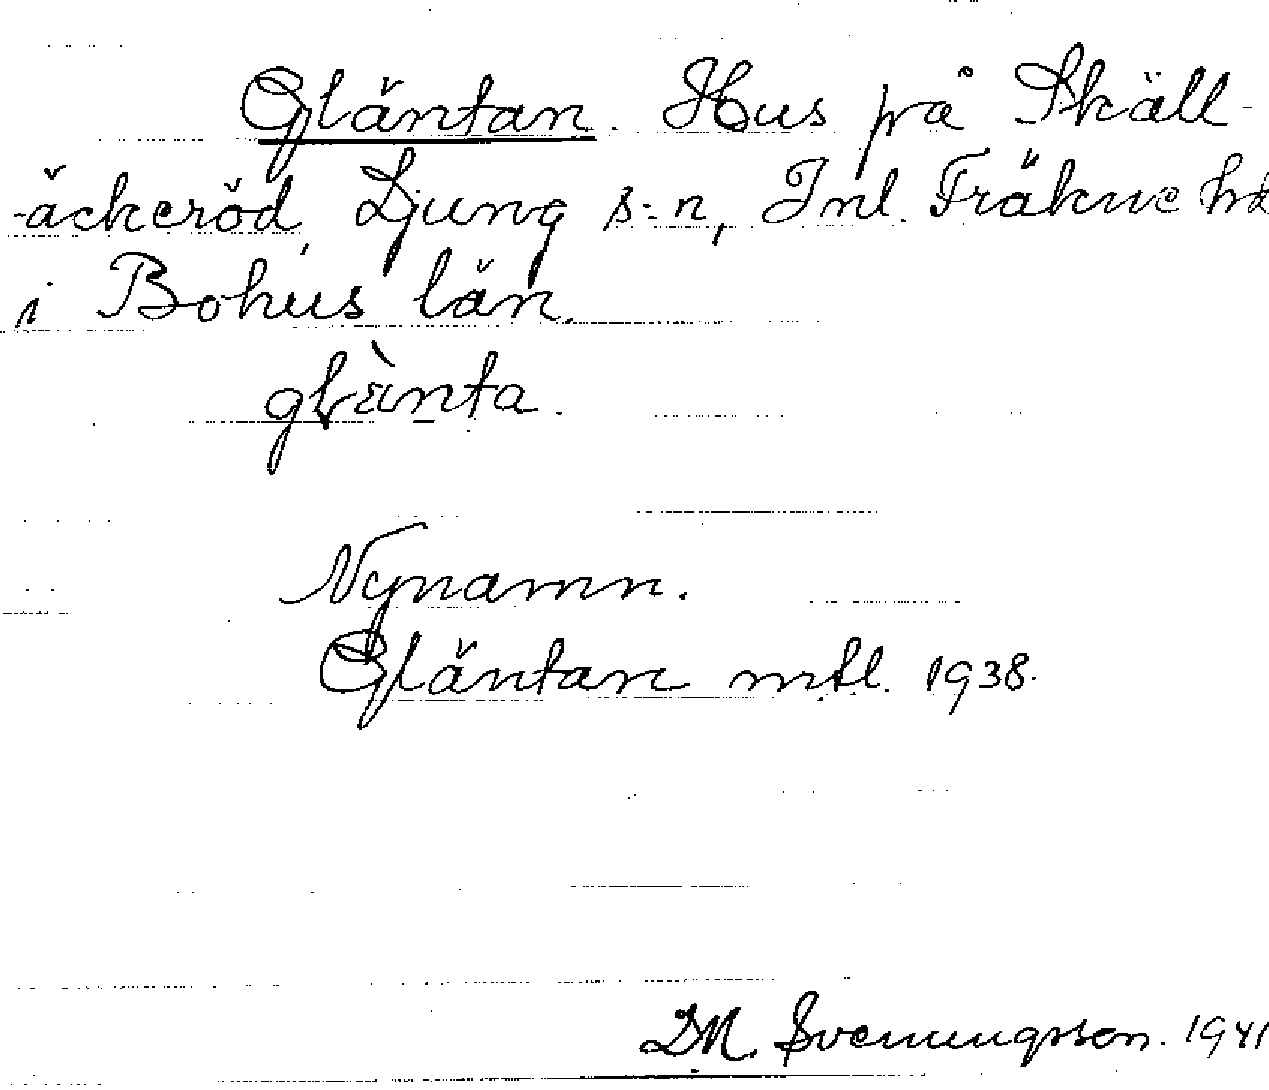 Gläntan. Hus på Skäll-
äckeröd, Ljung s-n, Inl. Fräkne hd
i Bohus län.
glànta.
Nynamn.
Gläntan mtl. 1938.
D.M. Svenungsson. 1941